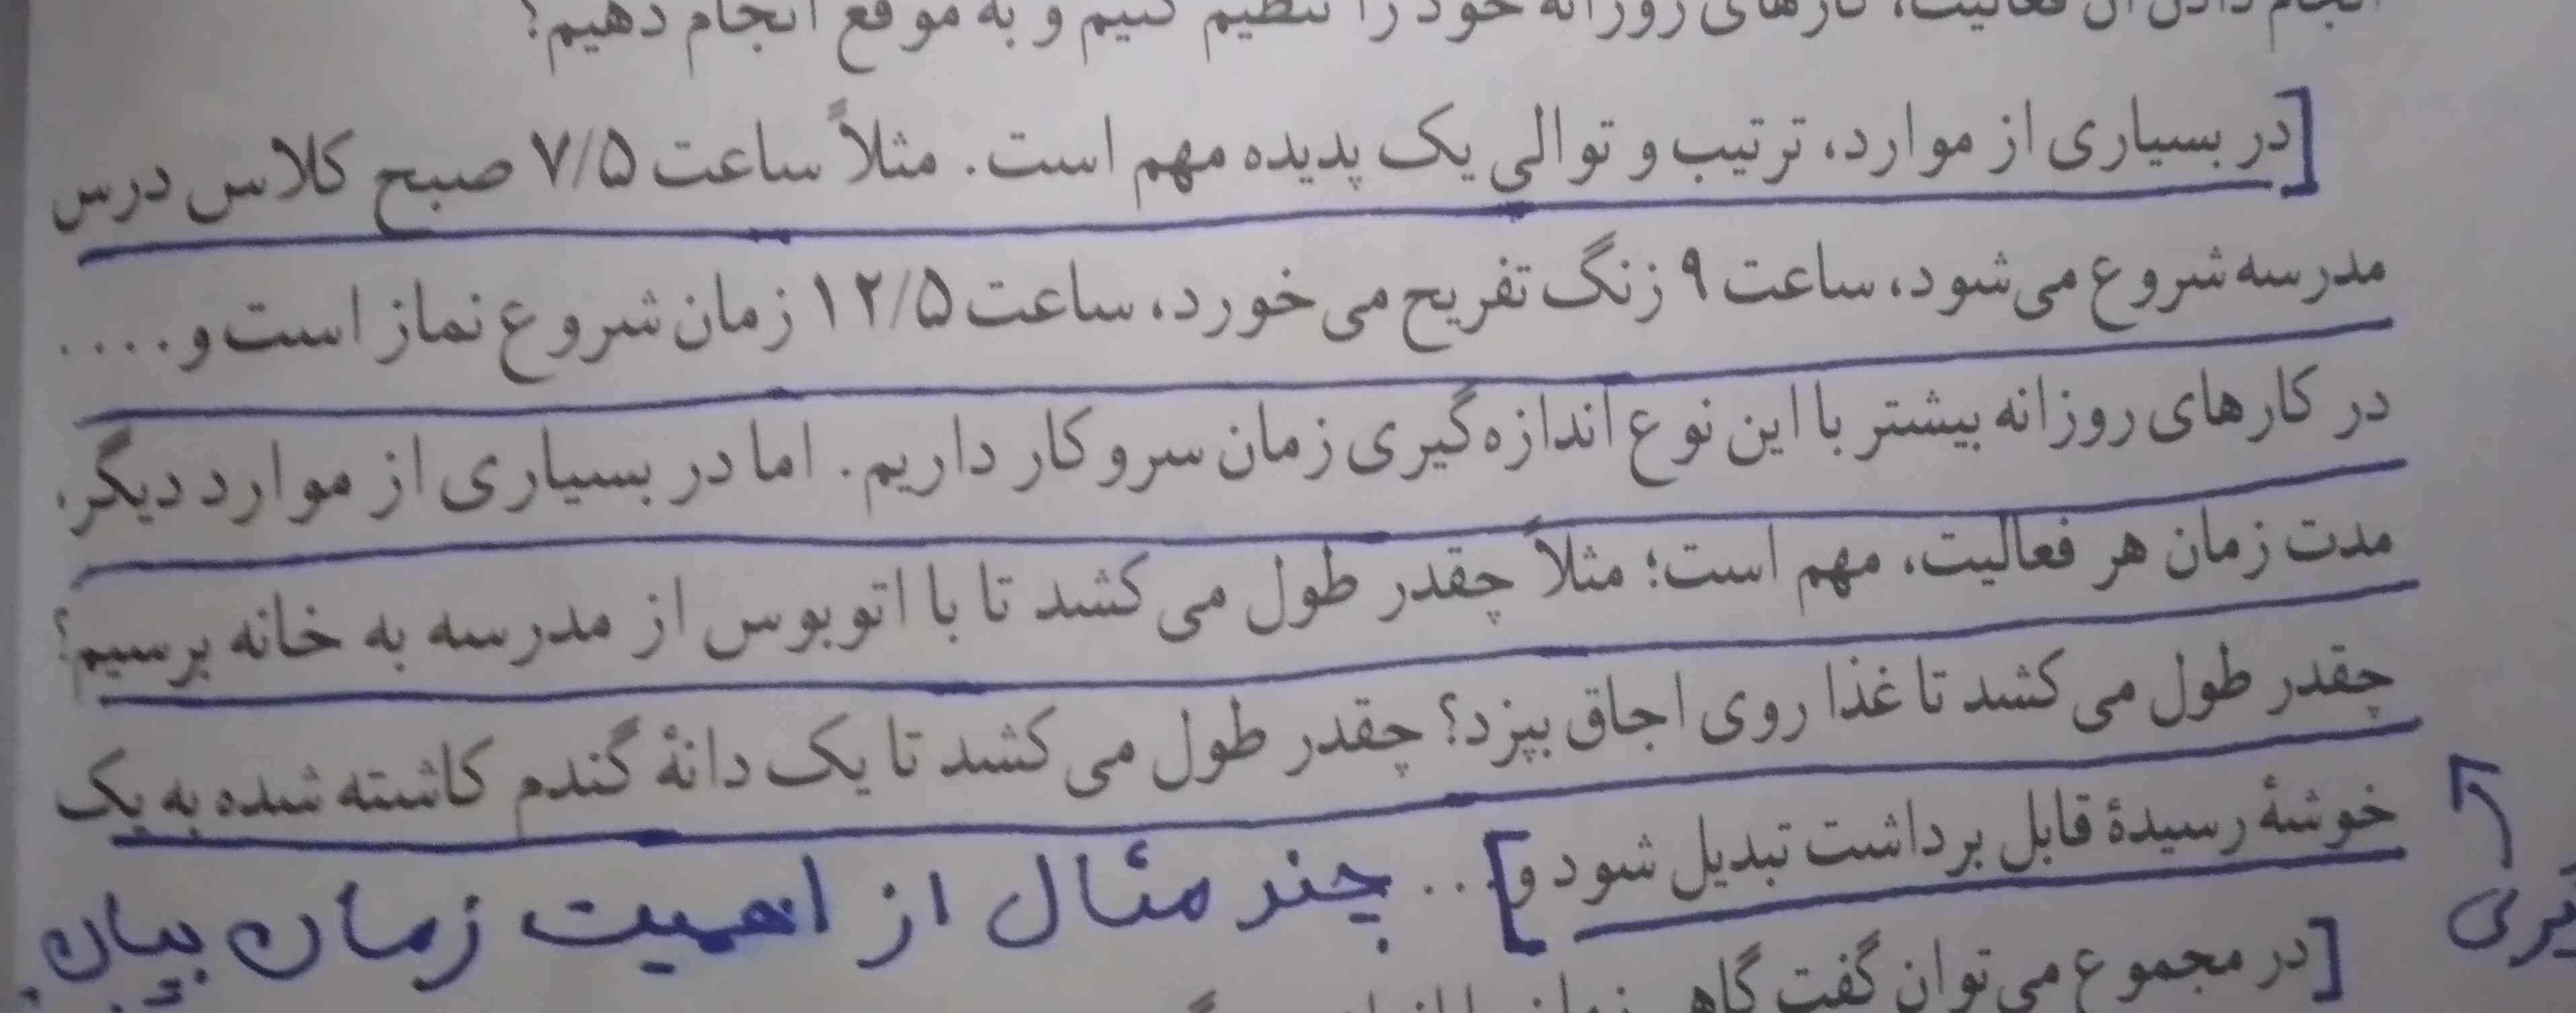 انجام دادن آن فعالیت، کارهای روزانه خود را تنظیم کنیم و به موقع انجام دهیم؟
[در بسیاری از موارد، ترتیب و توالی یک پدیده مهم است. مثلاً ساعت ۷/۵ صبح کلاس درس
مدرسه شروع می‌شود، ساعت ۹ زنگ تفریح می‌خورد، ساعت ۱۲/۵ زمان شروع نماز است و....
در کارهای روزانه بیشتر با این نوع اندازه‌گیری زمان سروکار داریم. اما در بسیاری از موارد دیگر،
مدت زمان هر فعالیت، مهم است؛ مثلاً چقدر طول می‌کشد تا با اتوبوس از مدرسه به خانه برسیم؟
چقدر طول می‌کشد تا غذا روی اجاق بپزد؟ چقدر طول می‌کشد تا یک دانهٔ گندم کاشته شده به یک
خوشهٔ رسیدهٔ قابل برداشت تبدیل شود و...]
چند مثال از اهمیت زمان بیان
[در مجموع می‌توان گفت گاهی